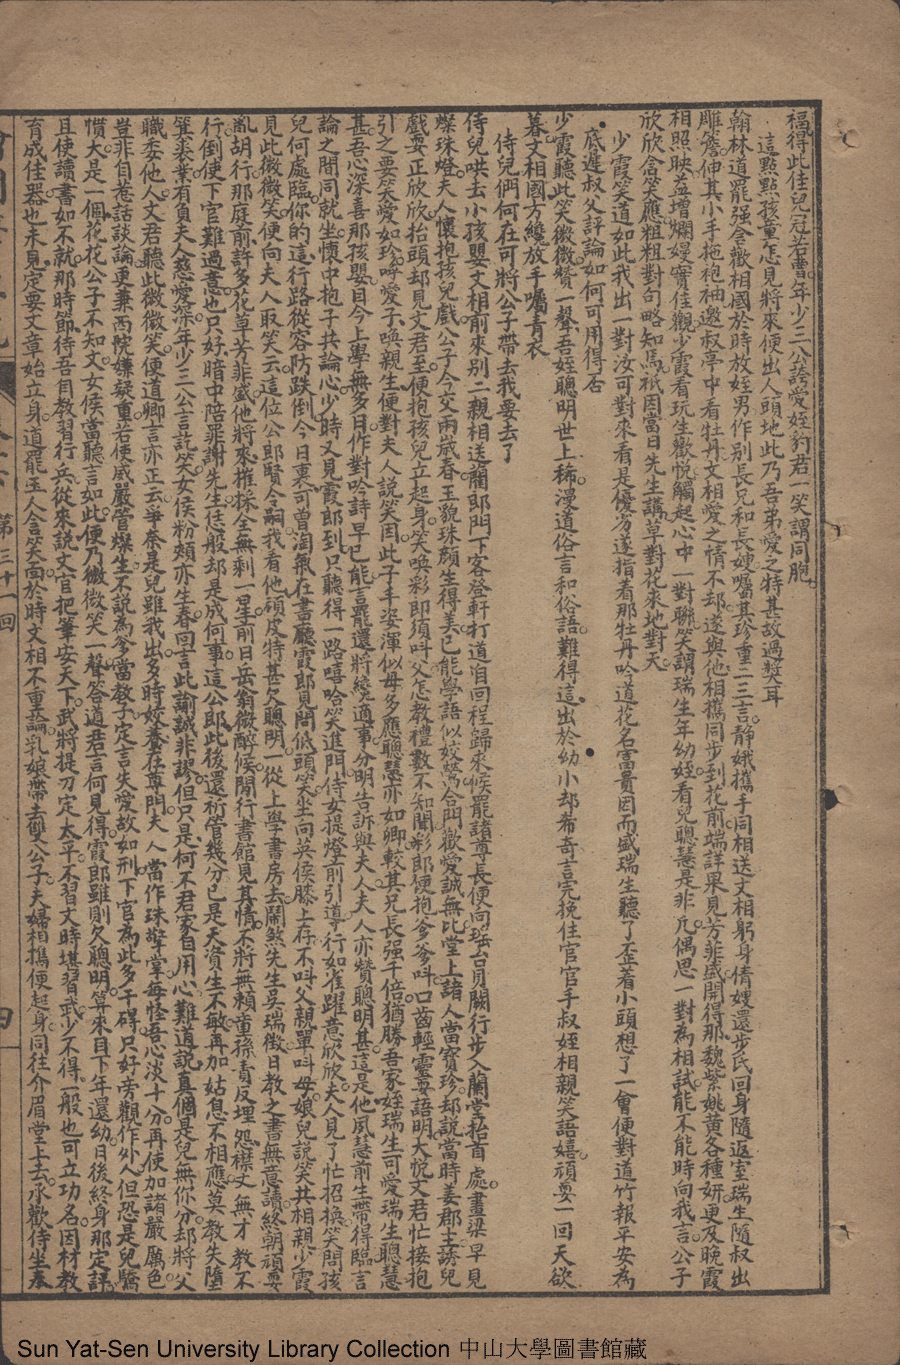 福得此佳兒冠若曹年少三公誇愛姪豹君一笑謂同胞
這點點孩童怎見將來便出人頭地此乃吾弟愛之特甚故過獎耳
翰林道罷強含歡相國於時放姪男作别長兄和長嫂囑其珍重二三言靜娥攜手同相送文相躬身倩嫂還步氏回身隨返室瑞生隨叔出
雕簷伸其小手拖袍袖邀叔亭中看牡丹文相愛之情不却遂與他相攜同步到花前端詳果見芳菲盛開得那魏紫姚黃各種妍更及晚霞
相照映益增斕嫚寔佳觀少霞看玩生歡悦觸起心中一對聯笑謂瑞生年幼姪看兒聰慧是非凡偶思一對為相試能不能時向我言公子
欣欣含笑應粗粗對句略知焉祇因當日先生講草對花來地對天
少霞笑道如此我出一對汝可對來看是優劣遂指着那牡丹吟道花名富貴因而盛瑞生聽了歪着小頭想了一會便對道竹報平安為
底遲叔父評論如何可用得否
少霞聽此笑微微贊一聲吾姪聰明世上稀漫道俗言和俗語難得這出於幼小却希奇言完挽住官官手叔姪相親笑語嬉頑耍一回天欲
暮文相國方纔放手囑青衣
侍兒們何在可將公子帶去我要去了
侍兒哄去小孩嬰文相前來别二親相送蘭郎門下客登軒打道自回程歸來候罷諸尊長便向瑤台見關行步入蘭堂抬首處畫梁早見
燦珠燈夫人懷抱孩兒戲公子今交兩歲春玉貌珠顔生得美已能學語似姣鶯合門歡愛誠無比堂上諸人當寶珍却説當時姜郡主誘兒
戲耍正欣欣抬頭却見文君至便抱孩兒立起身笑喚彩郎須叫父怎教禮數不知聞彩郎便抱爹爹叫口齒輕靈耍語明大悦文君忙接抱
引之耍笑愛如珍呼愛子喚親生便對夫人説笑因此子手姿渾似母多應聰慧亦如卿較其兄長強千倍猶勝吾家姪瑞生可愛瑞生聰慧
甚吾心深喜那孩嬰目今上學無多日作對吟詩早已能言罷還將纔適事分明告訴與夫人夫人亦贊聰明甚這是他夙慧前生帶得臨言
論之間同就坐懷中抱子共論心少時又見霞郎到只聽得一路嘻哈笑進門侍女提燈前引導行如雀躍意欣欣夫人見了忙招換笑問孩
兒何處臨你的這行路從容防跌倒今日裏可曾淘氣在書廳霞郎見問低頭笑坐向英侯膝上存不叫父親單叫母娘兒說笑共相親少霞
見此微微笑便向夫人取笑云這位公郎賢令嗣我看他頑皮特甚欠聰明一從上學書房去鬧煞先生吳瑞徵日教之書無意讀終朝頑耍
亂胡行那庭前許多花草芳菲盛他將來摧採全無剩一星前日岳翁微醉候閒行書館見其情不將無賴童孫責反埋怨襟丈無才教不
行倒使下官難過意也只好暗中陪罪謝先生恁般却是成何事這公郎此後還祈管幾分已是天資生不敏再加姑息不相應莫教失墮
箕裘業有負夫人慈愛深年少三公言訖笑女侯粉頰亦生春回言此諭誠非謬但只是何不君家自用心難道説真個是兒無你分却將父
職委他人文君聽此微微笑便道卿言亦正云爭奈是兒雖我出多時姣養在尊門夫人當作珠擎掌每怪吾心淡十分再使加諸嚴厲色
豈非自惹話談論更兼西院嫌疑重若使威嚴管燥生不説為爹當教子定言失愛故如刑下官為此多干碍只好旁觀作外人但恐是兒驕
慣大是一個花花公子不知文女侯當聽言如此便乃微微笑一聲答道君言何見得霞郎雖則欠聰明算來目下年還幼日後終身那定詳
且使讀書如不就那時節待吾自教習行兵從來説文官把筆安天下武將提刀定太平不習文時堪習武少不得一般也可立功名因材教
育成佳器也未見定要文章始立身道罷玉人含笑面於時文相不重論乳娘帶去雙人公子夫婦相攜便起身同往介眉堂上去承歡侍坐奉
第三十一回
四
Sun Yat-Sen University Library Collection 中山大學圖書館藏